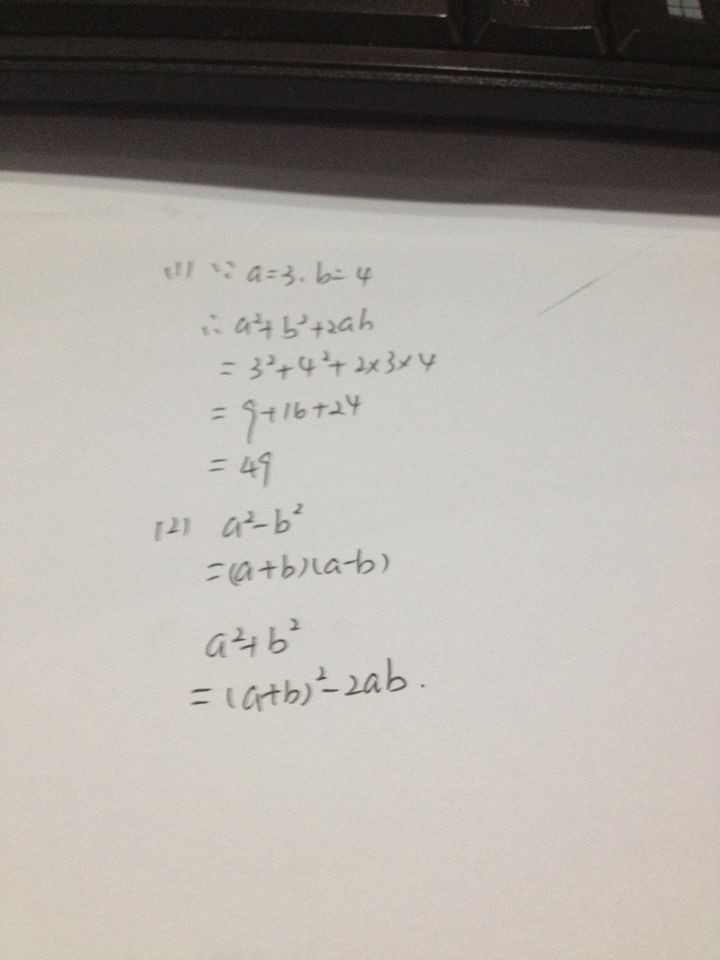 (1) ∵ a=3. b=4
∴ a²+b²+2ab
= 3²+4²+2×3×4
= 9+16+24
= 49
(2) a²-b²
=(a+b)(a-b)
a²+b²
= (a+b)²-2ab.